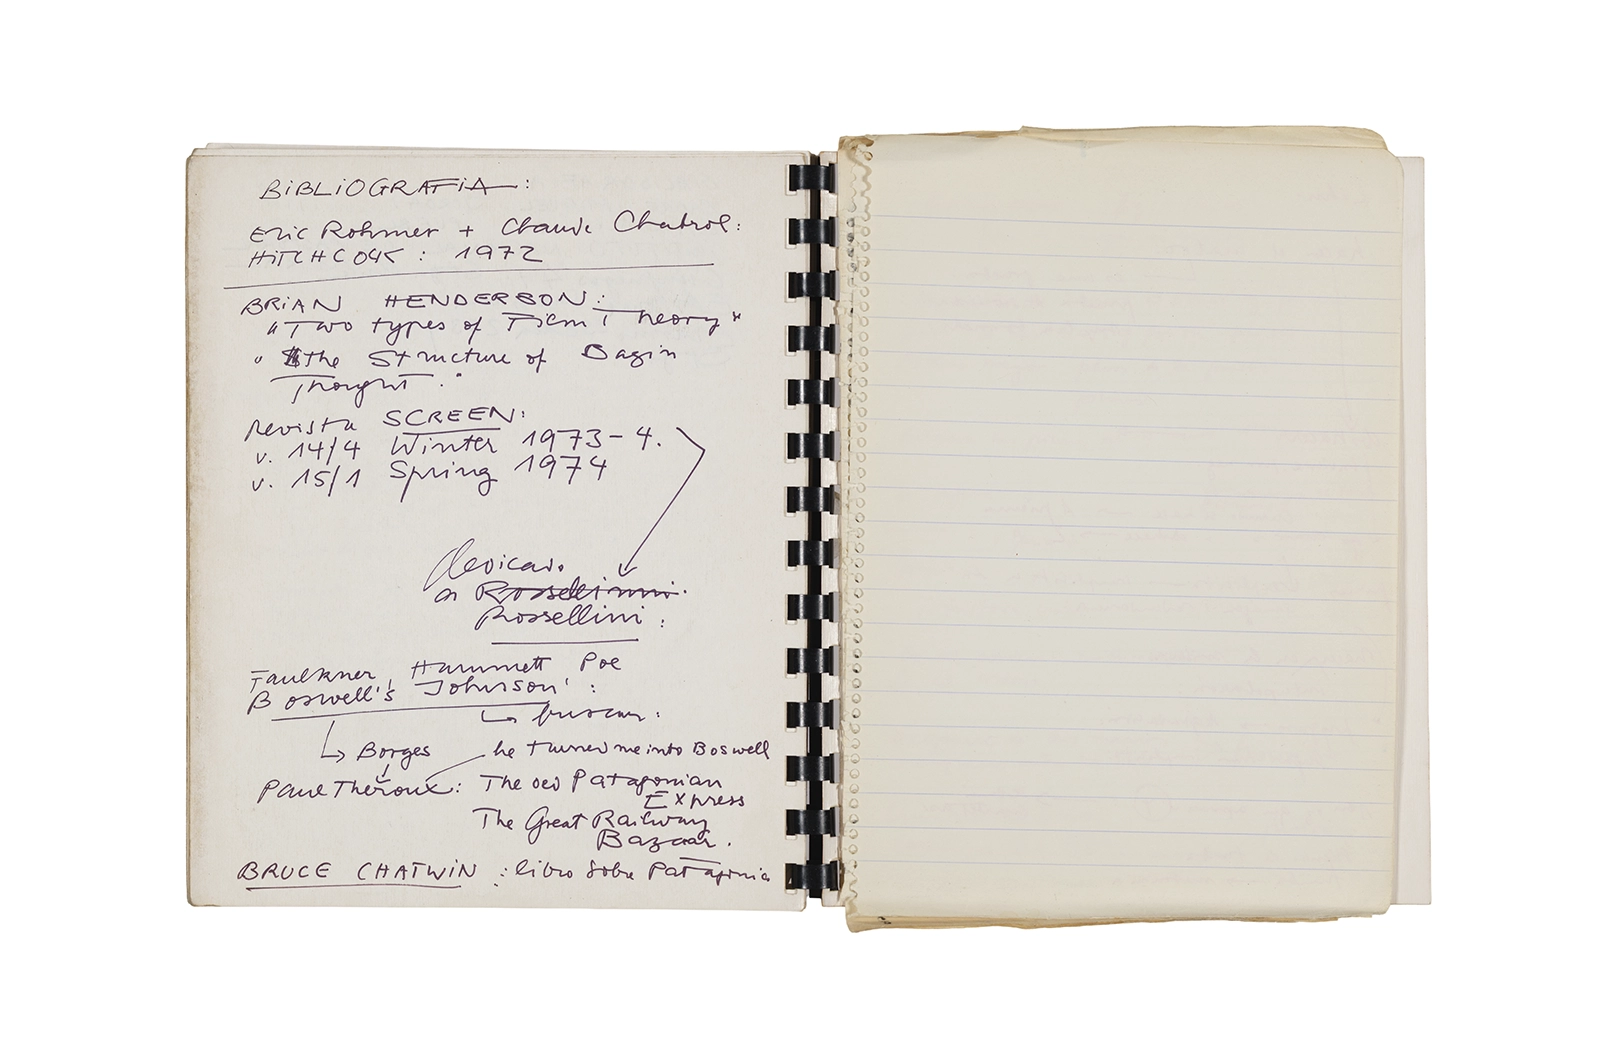 BIBLIOGRAFIA:
Eric Rohmer + Claude Chabrol:
HITCHCOCK: 1972
BRIAN HENDERSON:
"Two types of Film Theory"
"the Structure of Bazin
Thought."
Revista SCREEN:
v. 14/4 Winter 1973-4.
v. 15/1 Spring 1974
dedicado
a Rossellinni.
Rossellini:
Faulkner, Hammett Poe
Boswell's 'Johnson':
buscar:
Borges
he turned me into Boswell
Paul Theroux: The old Patagonian
Express
The Great Railway
Bazaar.
BRUCE CHATWIN: libro sobre Patagonia